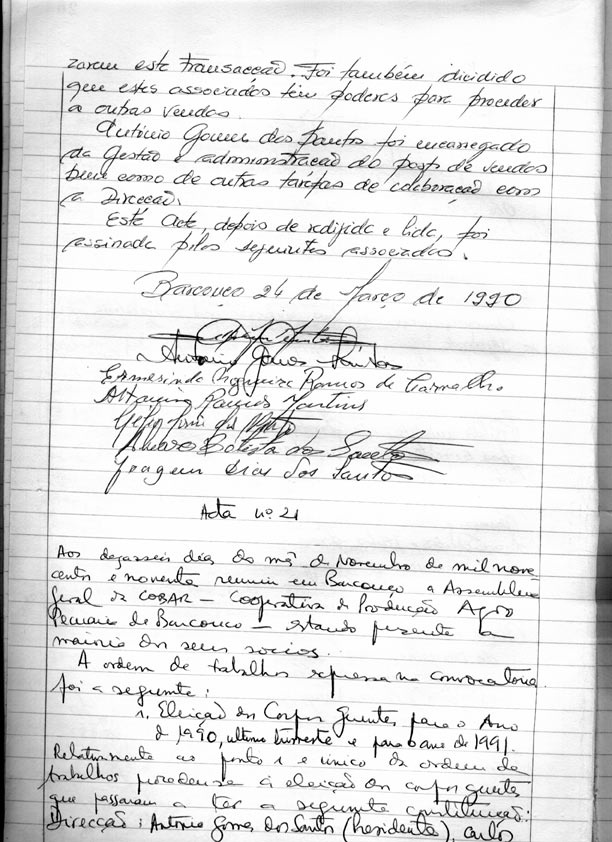 zaram esta transacção. Foi também dicidido
que estes associados têm poderes para proceder
a outras vendas.
António Gomes dos Santos foi encarregado
da Gestão e administração do posto de vendas
bem como de outras tarefas de colaboração com
a Direcção.
Esta Acta, depois de redijida e lida, foi
assinada pelos seguintes associados.
Barcouço 24 de Março de 1990
António Gomes Santos
Ermesinda Nogueira Ramos de Carvalho
Martins
Alvaro Batista dos Santos
Joaquim Dias dos Santos
Acta nº 21
Aos dezasseis dias do mês de Novembro de mil nove
centos e noventa reuniu em Barcouço a Assembleia
Geral da COBAR - Cooperativa de Produção Agro
Pecuária de Barcouço - estando presente a
maioria dos seus sócios.
A ordem de trabalhos expressa na convocatória
foi a seguinte:
1. Eleição dos Corpos Gerentes para o Ano
de 1990, ultimo trimestre e para o ano de 1991.
Relativamente ao ponto 1 e único da ordem de
trabalhos procedeu-se à eleição dos corpos gerentes
que passaram a ter a seguinte constituição:
Direcção: Antonio Gomes dos Santos (Presidente), Carlos